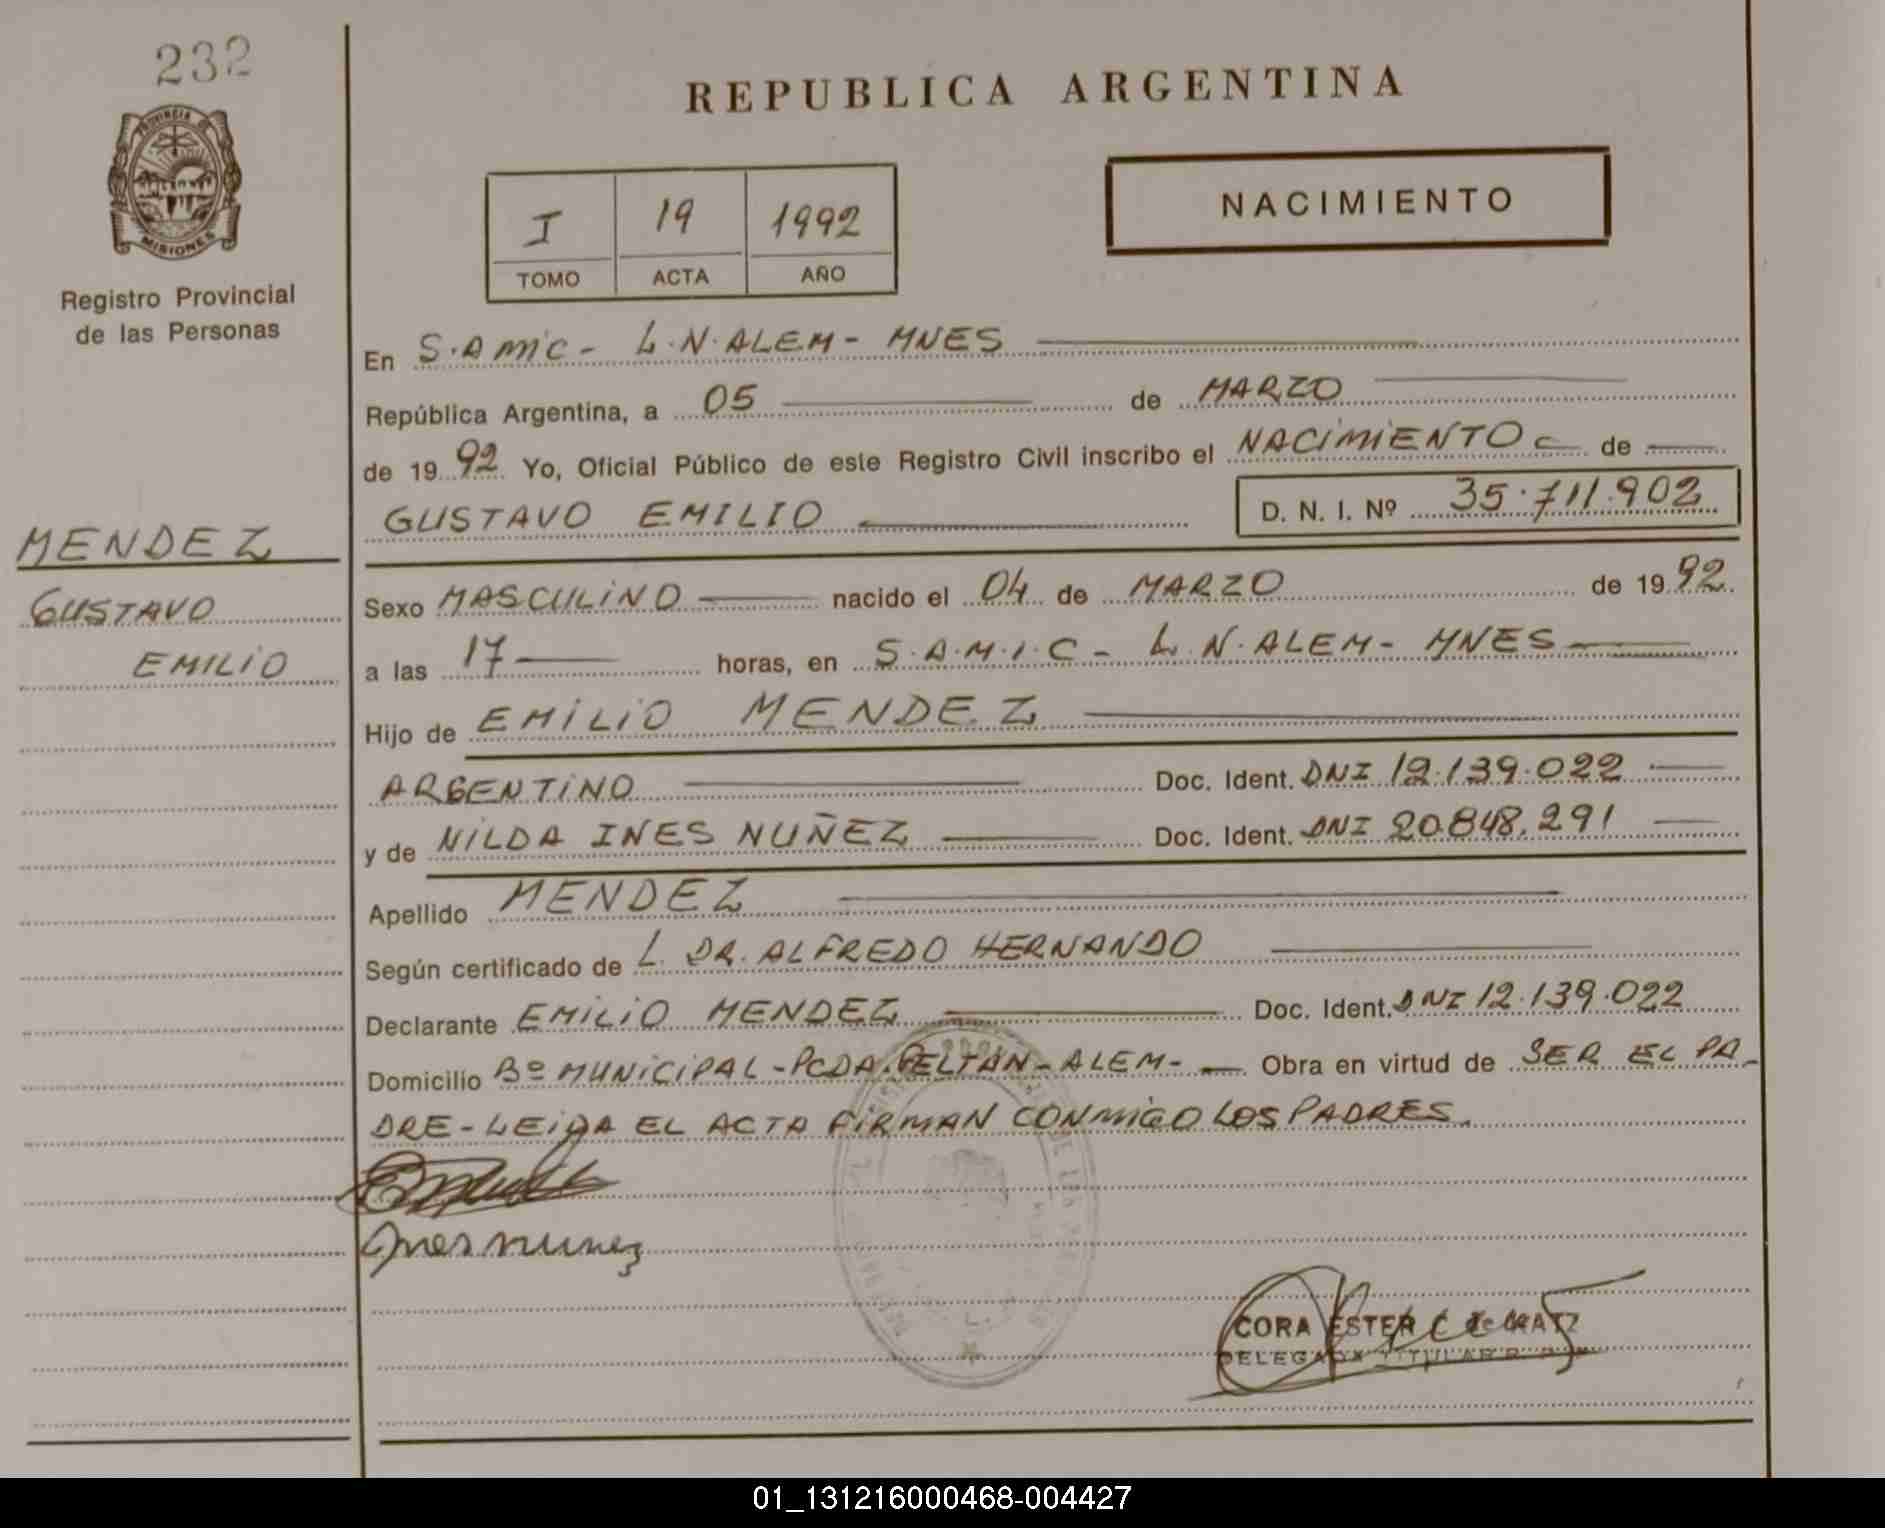 232
PROVINCIA DE
MISIONES
Registro Provincial
de las Personas
MENDEZ
GUSTAVO
EMILIO
REPUBLICA ARGENTINA
I 19 1992
TOMO ACTA AÑO
NACIMIENTO
En S.AMIC - L.N.ALEM - MNES
República Argentina, a 05 de MARZO
de 1992 Yo, Oficial Público de este Registro Civil inscribo el NACIMIENTO de
GUSTAVO EMILIO D. N. I. Nº 35.711.902
Sexo MASCULINO nacido el 04 de MARZO de 1992.
a las 17 horas, en S.A.M.I.C - L.N.ALEM - MNES
Hijo de EMILIO MENDEZ
ARGENTINO Doc. Ident. DNI 12.139.022
y de NILDA INES NUÑEZ Doc. Ident. DNI 20.848.291
Apellido MENDEZ
Según certificado de L. DR. ALFREDO HERNANDO
Declarante EMILIO MENDEZ Doc. Ident. DNI 12.139.022
Domicilio Bº MUNICIPAL - PCDA. BELTAN - ALEM - Obra en virtud de SER EL PA-
DRE - LEIDA EL ACTA FIRMAN CONMIGO LOS PADRES.
Ines nunez
CORA ESTER
DELEGADA TITULAR
01_131216000468-004427